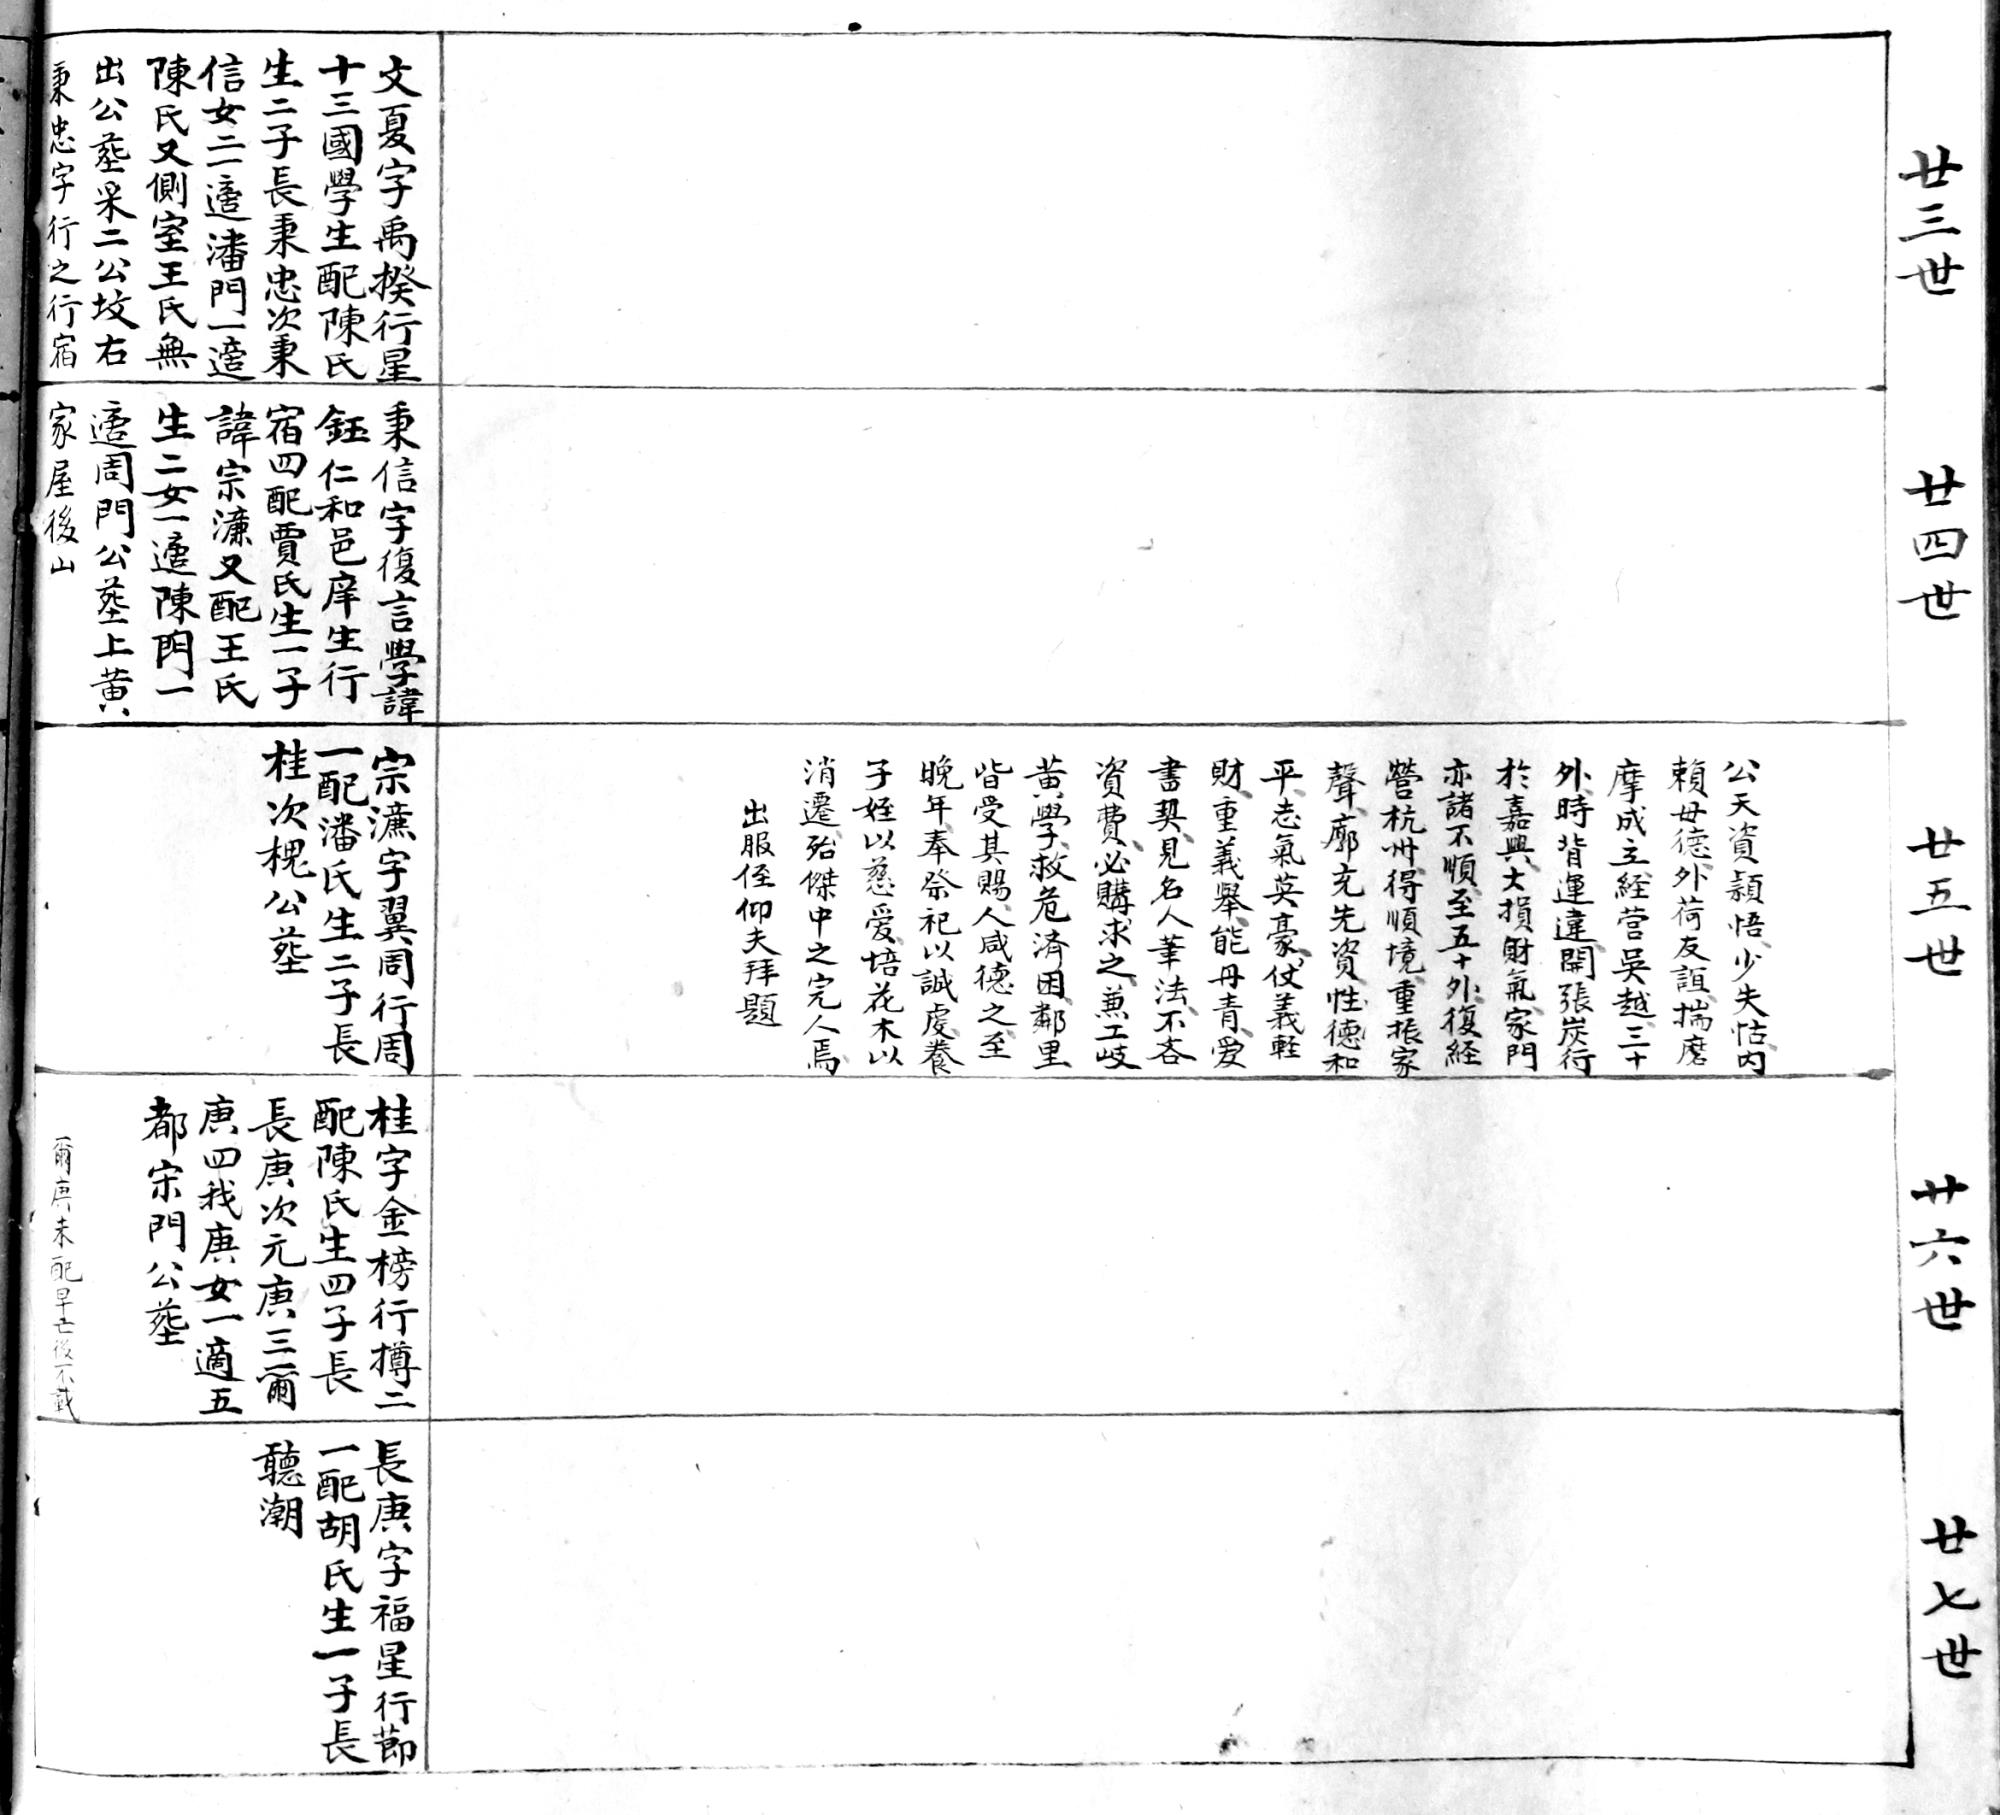 廿三世
文夏字禹揆行星
十三國學生配陳氏
生二子長秉忠次秉
信女二一適潘門一適
陳氏又側室王氏無
出公塟采二公坟右
秉忠字行之行宿
廿四世
秉信字復言學諱
鈺仁和邑庠生行
宿四配賈氏生一子
諱宗濂又配王氏
生二女一適陳門一
適周門公塟上黄
家屋後山
廿五世
公天資穎悟、少失怙、内
賴母德、外荷友誼、揣磨
摩成立、経营吴越、三十
外、時背運違、開張炭行
於嘉興、大損財氣、家門
亦諸不順、至五十外、復経
營杭州、得順境、重振家
聲、廓充先資、性德和
平、志氣英豪、仗義軽
財、重義舉、能丹青、爱
書契、見名人筆法、不吝
資費、必購求之、兼工岐
黄學、救危済困、鄰里
皆受其賜、人咸德之、至
晚年、奉祭祀以誠、處養
子姪以慈爱、培花木以
消遷、殆傑中之完人焉、
出服侄仰夫拜題
宗濂字翼周行周
一配潘氏生二子長
桂次槐公塟
廿六世
桂字金榜行撙二
配陳氏生四子長
長庚次元庚三爾
庚四我庚女一適五
都宋門公塟
爾庚未配早亡後不載
廿七世
長庚字福星行節
一配胡氏生一子長
聽潮